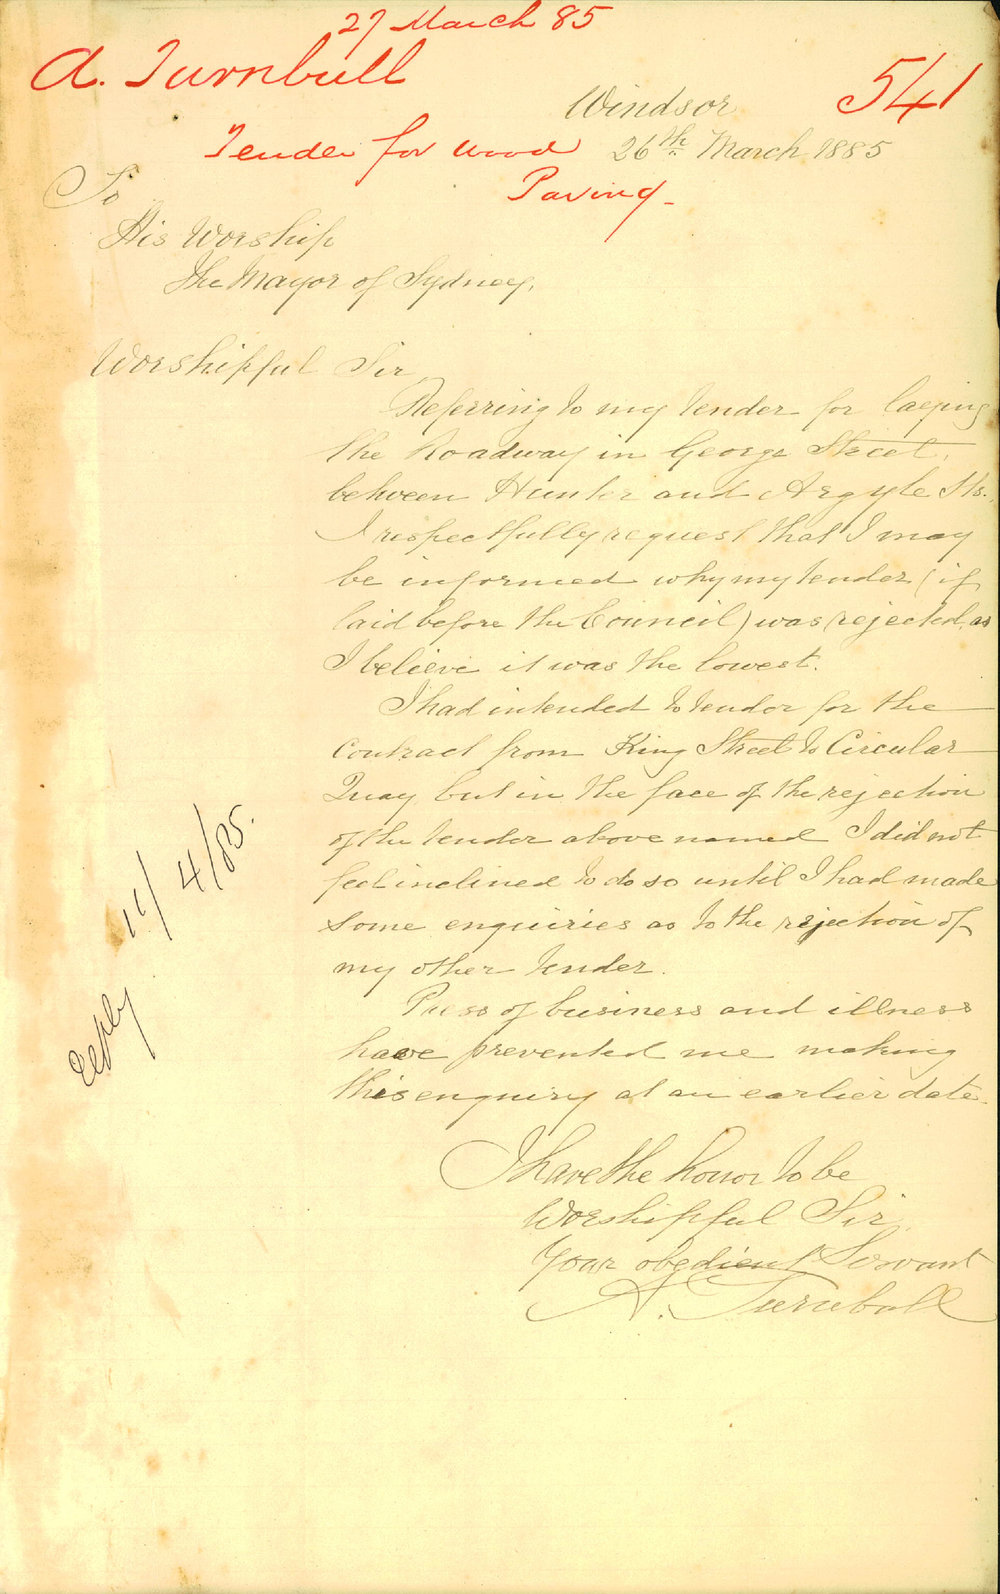 27 March 85
A. Turnbull
541
Windsor
Tender for Wood 26th March 1885
Paving -
To
His Worship
The Mayor of Sydney,
Worshipful Sir
Referring to my tender for
the Roadway in George Street,
between Hunter and Argyle Sts.
I respectfully request that I may
be informed why my tender (if
laid before the Council) was rejected, as
I believe it was the lowest.
I had intended to tender for the
Contract from King Street to Circular
Quay but in the face of the rejection
of the tender above named I did not
feel inclined to do so until I had made
some enquiries as to the rejection of
my other tender.
Press of business and illness
have prevented me making
this enquiry at an earlier date.
I have the honor to be
Worshipful Sir,
Your obedient Servant
A. Turnbull
4/85.